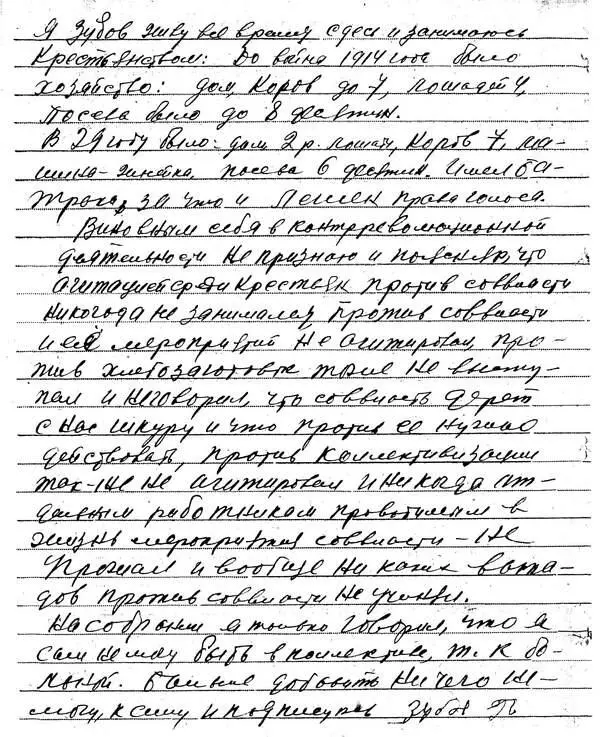 Я Зубов живу все время сдесь и занимаюсь
Крестьянством: До войны 1914 года было
хозяйство: дом, Коров до 7, лошадей 4,
посева было до 8 десятин.
В 29 году было: дом, 2 р. лошади, Коров 7, ма-
шина-жнейка, посева 6 десятин. Имел ба-
трака, за что и Лешен права голоса.
Виновным себя в контрреволюционной
деятельности Не признаю и поясняю, что
агитацией среди Крестьян против соввласти
Никогда не занимался против соввласти
и её мероприятий Не агитировал, про-
тив хлебозаготовок тоже Не высту-
пал и Неговорил, что соввласть дерет
с нас шкуру и что против ее нужно
действовать, против коллективизации
так-же Не агитировал и никогда от-
дельным работникам проводимым в
жизнь мероприятия соввласти - Не
Угрожал и вообще Ни каких выпа-
дов против соввласти Не учинял.
На собрании я только говорил, что я
сам немогу быть в коллективе, т. к бо-
льной. Больше добавить Ничего не-
могу, к сему и подписуюсь Зубов